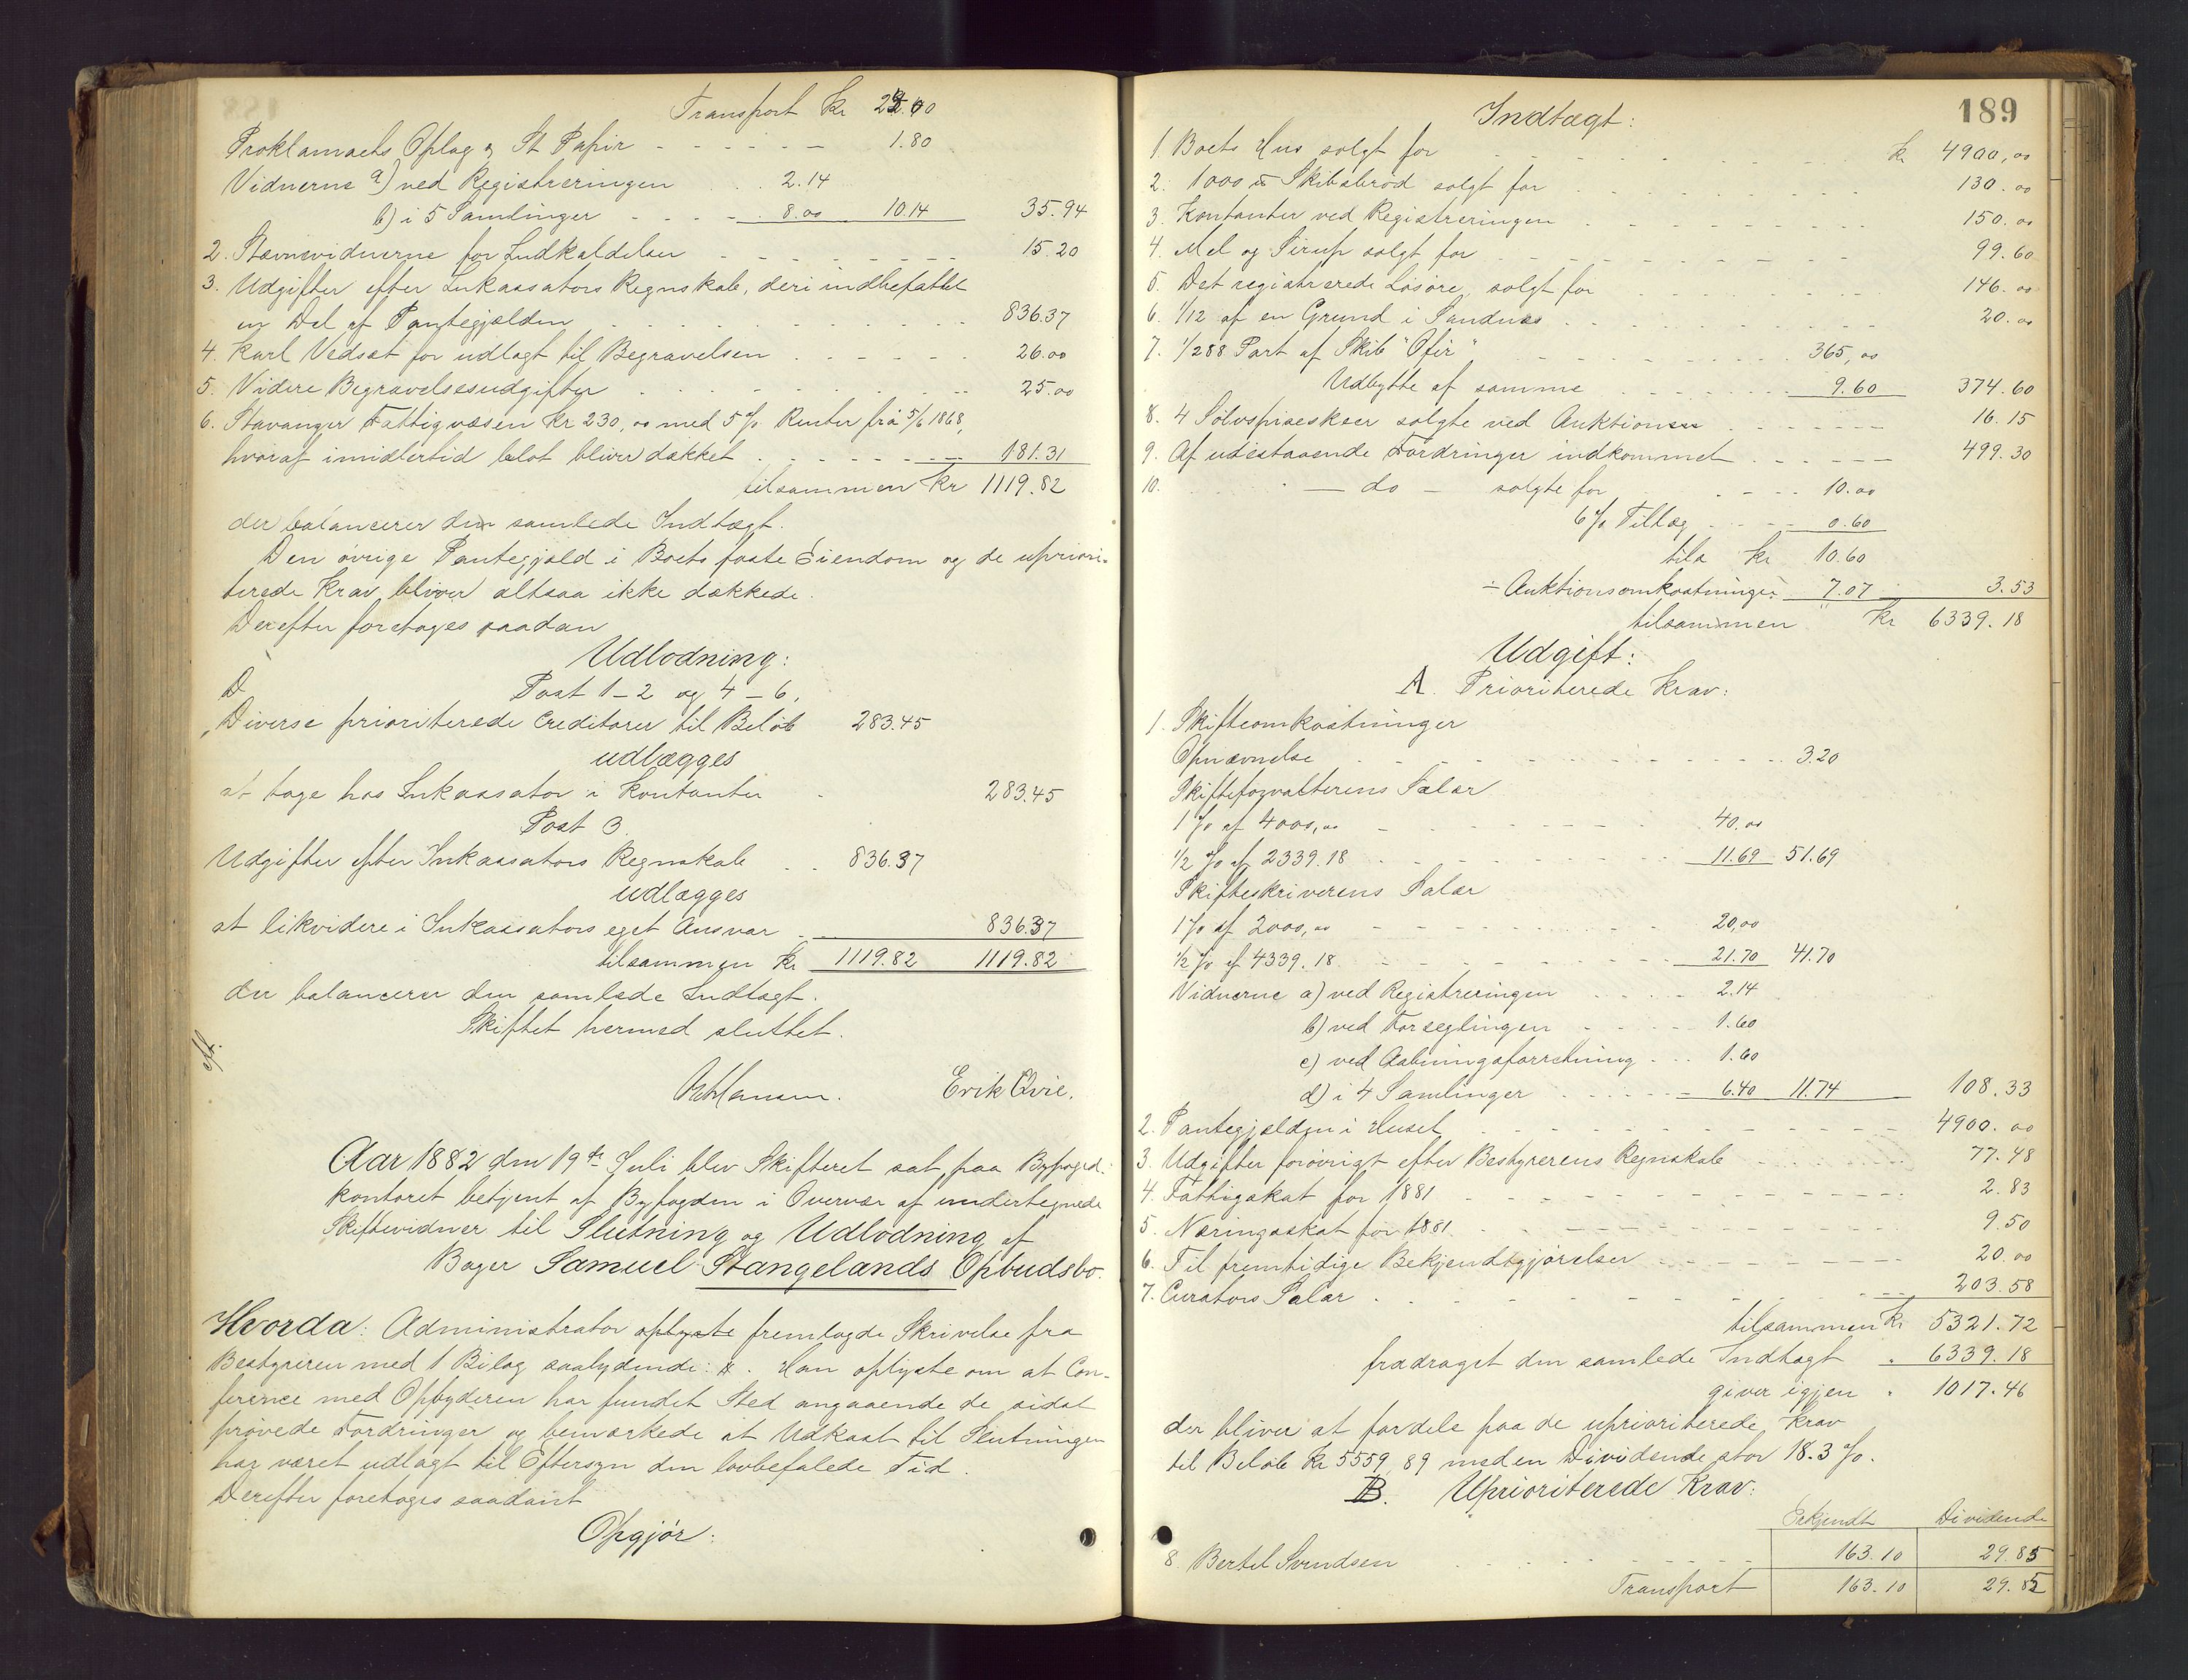 Transport Kr 22.00
Proklamaets Oplag og St Papir - - - - - - 1.80
Vidnerne a) ved Registreringen . . 2.14
b) i 5 Samlinger - - - - 8.00 10.14 35.94
2. Stævnevidnerne for Indkaldelsen - - - - - - - 15.20
3. Udgifter efter Inkassators Regnskab, deri indbefattet
en Del af Pantegjælden . . . . . . . 836.37
4. Karl Vedsæt for udlagt til Begravelsen . . . . . . 26.00
5. Videre Begravelsesudgifter . . . . . . 25.00
6. Stavanger Fattigvæsen Kr 230,00 med 5 % Renter fra 5/6 1868,
hvoraf imidlertid blot bliver dækket . . . . . . 181.31
tilsammen Kr 1119.82
der balancerer den samlede Indtægt.
Den øvrige Pantegjæld i Boets faste Eiendom og de upriori-
terede Krav bliver altsaa ikke dækkede.
Derefter foretages saadan
Udlodning:
D
Post 1-2 og 4-6,
Diverse prioriterede Creditorer til Beløb 283.45
udlægges
at tage hos Inkassator i Kontanter - 283.45
Post 3.
Udgifter efter Inkassators Regnskab . . 836.37
udlægges
at likvidere i Inkassators eget Ansvar - 836.37
tilsammen Kr 1119.82 1119.82
der balancerer den samlede Indtægt.
Skiftet hermed sluttet.
Erik Qvie.
Aar 1882 den 19de Juli blev Skifteret sat paa Byfoged.
kontoret betjent af Byfogden i Overvær af undertegnede
Skiftevidner til Slutning og Udlodning af
Bager Samuel Stangelands Opbudsbo.
Hvorda: Administrator oplyste fremlagde Skrivelse fra
Bestyreren med 1 Bilag saalydende: . Han oplyste om at Con-
ference med Opbyderen har fundet Sted angaaende de sidst
prøvede Fordringer og bemærkede at Udkast til Slutningen
har været udlagt til Eftersyn den lovbefalede Tid.
Derefter foretages saadant
Opgjør:
189
Indtægt:
1. Boets Hus solgt for . . . . . . . Kr 4900,00
2. 1000 ℔ Skibsbrød solgt for . . . . . . 130.00
3. Kontanter ved Registreringen . . . . . . 150.00
4. Mel og Sirup solgt for . . . . . . 99.60
5. Det registrerede Løsøre solgt for . . . . . . 146.00
6. 1/12 af en Grund i Sandnæs . . . . . . 20.00
7. 1/288 Part af Skib "Ofir" . . . . . . 365,00
Udbytte af samme . . . . . . 9.60 374.60
8. 4 Sølvspiseskeer solgte ved Auktionen . . . . . . 16.15
9. Af udestaaende Fordringer indkommet . . . . . . 499.30
10. — do — solgte for . . . . 10.00
6 % Tillæg . . . . 0.60
tils Kr 10.60
÷ Auktionsomkostninger 7.07 3.53
tilsammen Kr 6339.18
Udgift:
A. Prioriterede Krav:
1. Skifteomkostninger
Opnævnelse . . . . . . 3.20
Skifteforvalterens Salær
1 % af 4000,00 - - - - 40.00
1/2 % af 2339.18 - - - - 11.69 51.69
Skifteskriverens Salær
1 % af 2000,00 - - - - 20,00
1/2 % af 4339.18 - - - - 21.70 41.70
Vidnerne a) ved Registreringen . . . . 2.14
b) ved Forseglingen . . . . 1.60
c) ved Aabningsforretning . . . 1.60
d) i 4 Samlinger . . . . . . 6.40 11.74 108.33
2. Pantegjælden i Huset - - - - - - 4900.00
3. Udgifter forøvrigt efter Bestyrerens Regnskab . . . . . . 77.48
4. Fattigskat for 1881 - - - - - - 2.83
5. Næringsskat for 1881 - - - - - - 9.50
6. Til fremtidige Bekjendtgjørelser - - - - - - 20.00
7. Curators Salær . - - - - - - 203.58
tilsammen Kr 5321.72
fradraget den samlede Indtægt " 6339.18
giver igjen " 1017.46
der bliver at fordele paa de uprioriterede Krav
til Beløb Kr 5559,89 med en Dividende stor 18.3 %.
B. Uprioriterede Krav:
Erkjendt Dividende
8. Bertel Svendsen . . . . . . 163.10 29.85
Transport 163.10 29.85